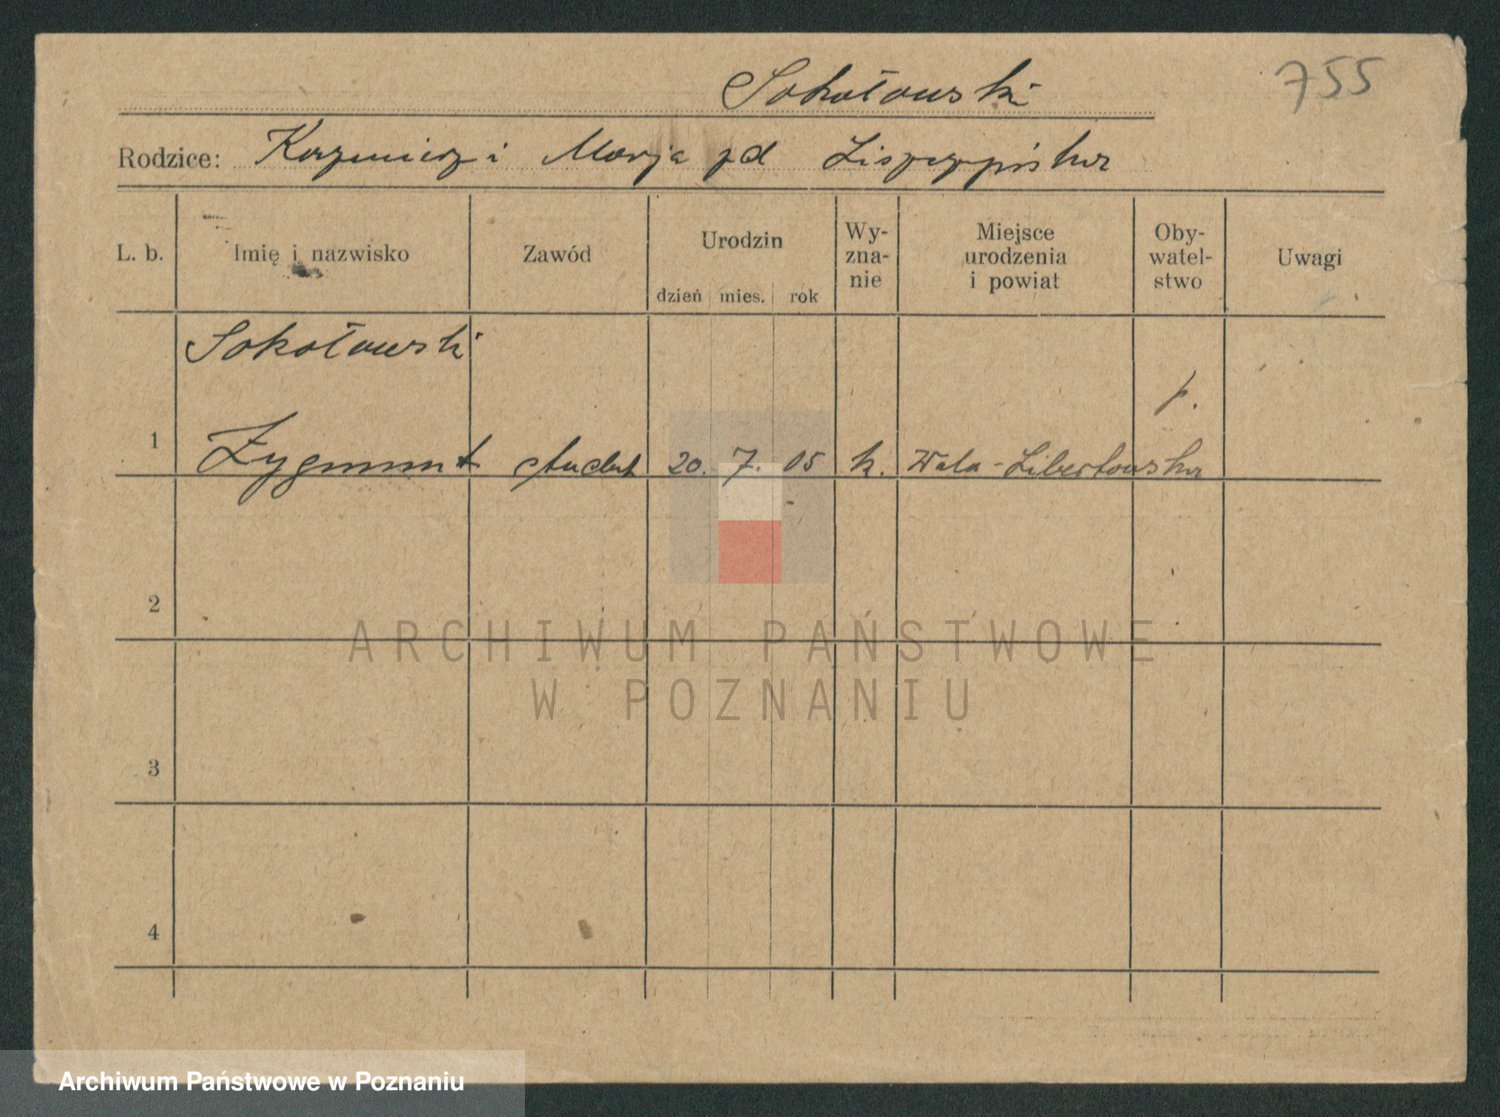 Sokołowski 755
Rodzice: Kazimierz i Marja zd
L. b. Imię i nazwisko Zawód Urodzin dzień mies. rok Wy-zna-nie Miejsce urodzenia i powiat Oby-watel-stwo Uwagi
Sokołowski
p.
1 Zygmunt student 20. 7. 05 k. Wola-Libertowska
2
3
4
ARCHIWUM PAŃSTWOWE
W POZNANIU
Archiwum Państwowe w Poznaniu